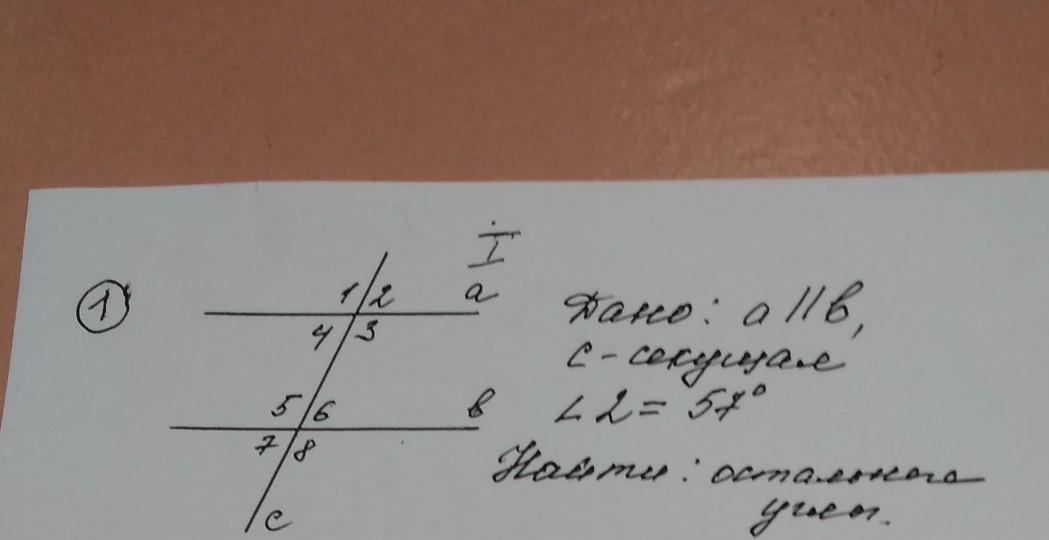 I
1
1 2 a
4 3
5 6 в
7 8
c
Дано: a || в,
c - секущая
∠ 2 = 57°
Найти: остальные
углы.